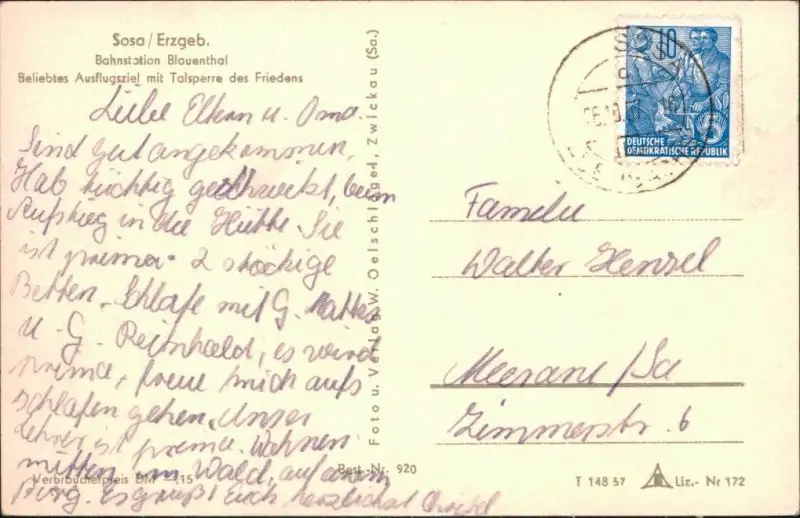 Sosa / Erzgeb.
Bahnstation Blauenthal
Beliebtes Ausflugsziel mit Talsperre des Friedens
Liebe Eltern u. Oma.
Sind gut angekommen.
Hab tüchtig geschwitzt, beim
Aufstieg in die Hütte. Sie
ist prima. 2 stöckige
Betten. Schlafe mit G. Mattes
u. G. Reinhold, es wird
prima, freue mich aufs
schlafen gehen. Unser
Lehrer ist prema. Wohnen
mitten im Wald, auf einem
Berg. Es grüßt Euch herzlichst
Verbraucherpreis DM —,15
Best.-Nr. 920
Foto u. Verlag W. Oelschlägel, Zwickau (Sa.)
SOSA
10
DEUTSCHE
DEMOKRATISCHE REPUBLIK
Familie
Walter Henzel
Meerane/Sa
Zimmerstr. 6
T 148 57 Liz.- Nr 172